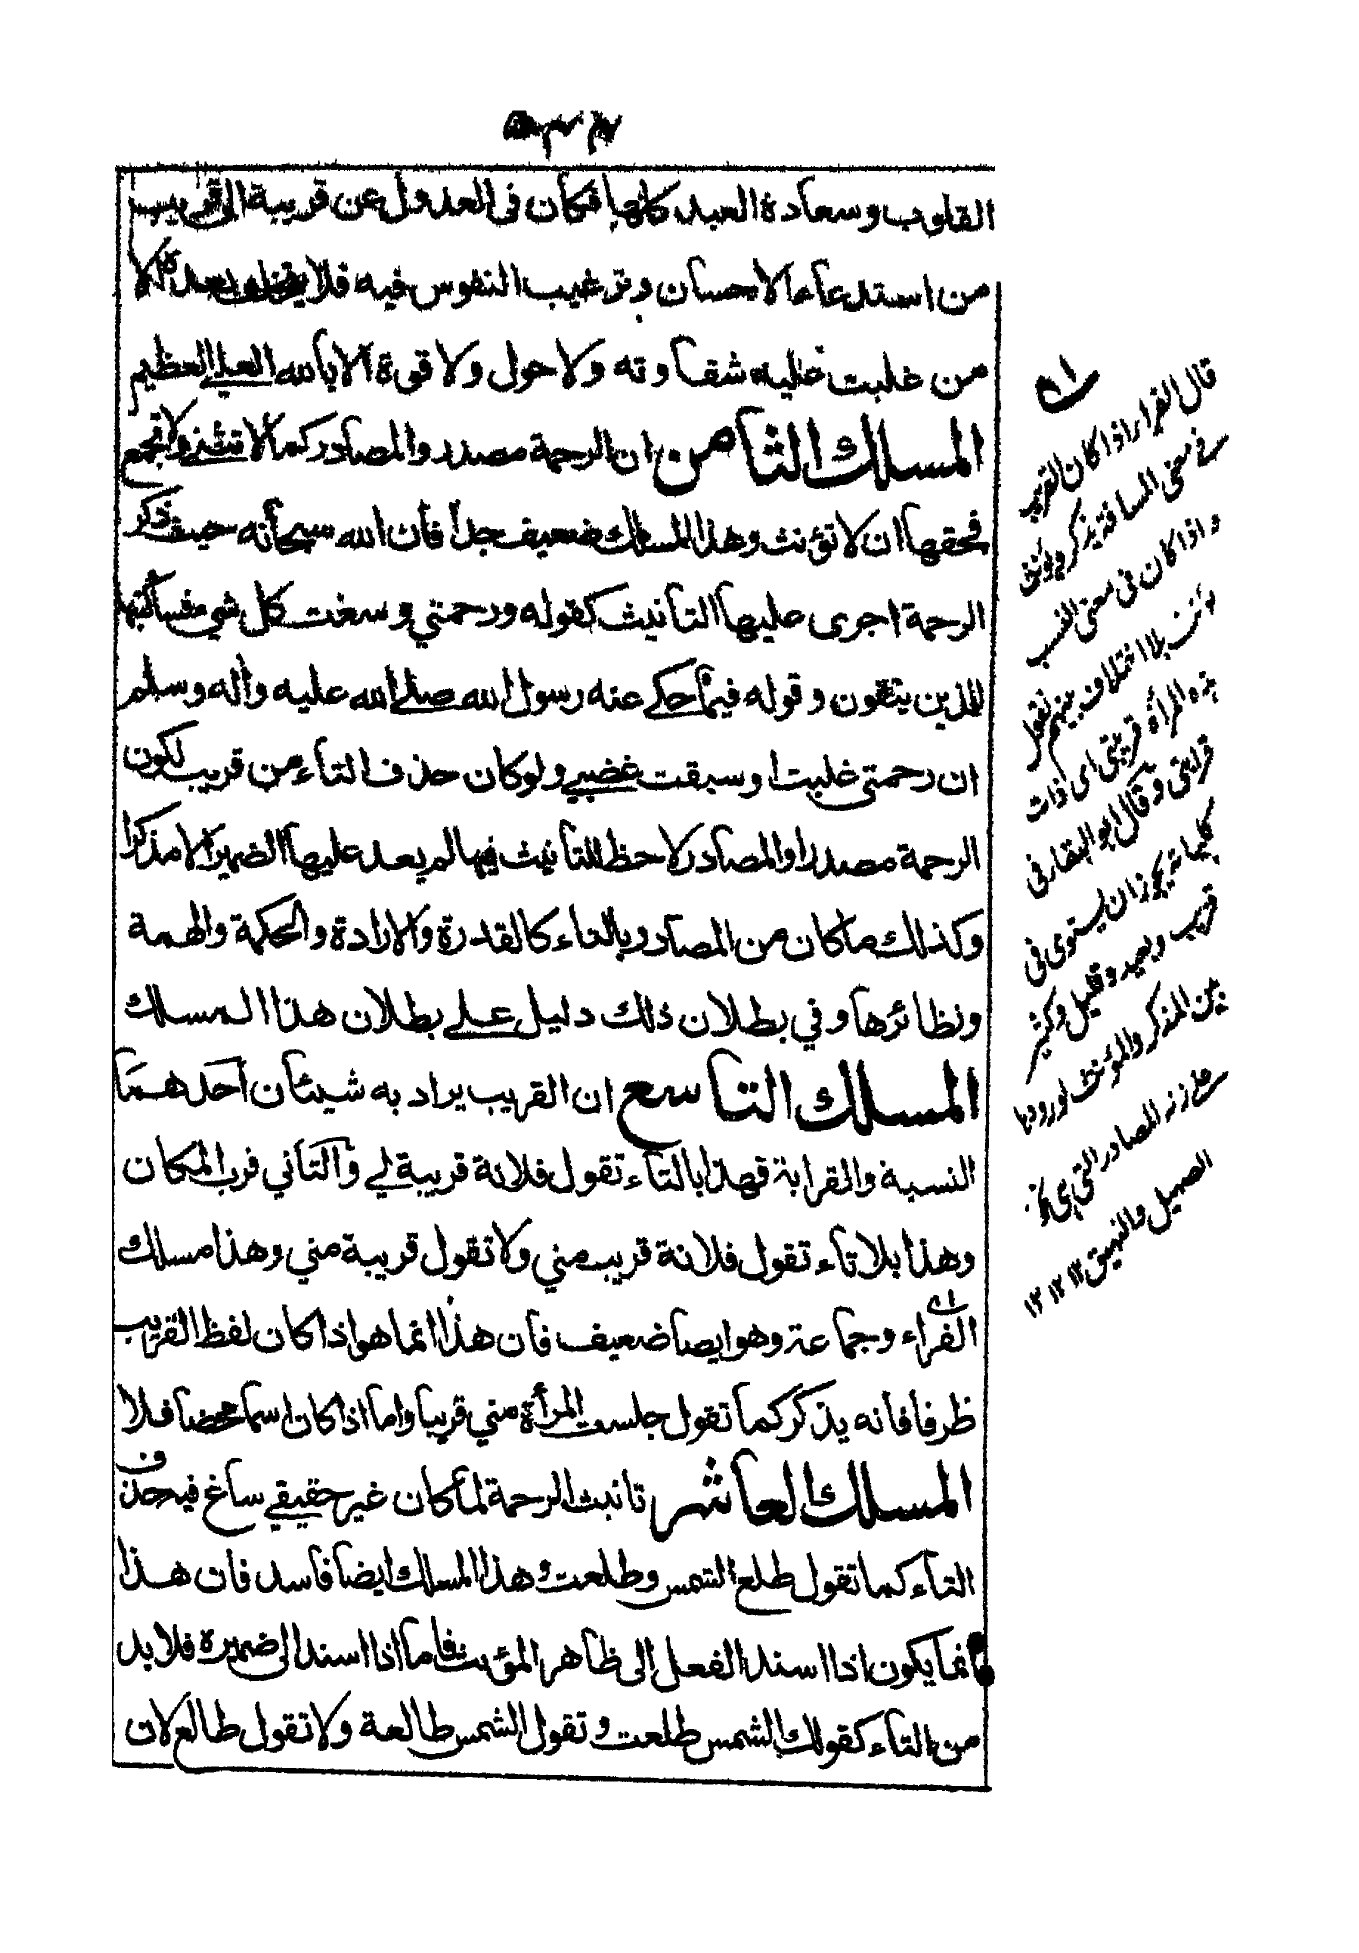 القلوب وسعادة العبد كلها فكان في العدول عن قريبة الى قريب
من استدعاء الاحسان وترغيب النفوس فيه فلا يتخلف بعده الا
من غلبت عليه شقاوته ولا حول ولا قوة الا بالله العلي العظيم
المسلك الثامن ان الرحمة مصدر والمصادر كما لا تثنى ولا تجمع
فحقها ان لا تؤنث وهذا المسلك ضعيف جدا فان الله سبحانه حيث ذكر
الرحمة اجرى عليها التانيث كقوله ورحمتي وسعت كل شي فسأكتبها
للذين يتقون وقوله فيما حكى عنه رسول الله صلى الله عليه وآله وسلم
ان رحمتي غلبت او سبقت غضبي ولو كان حذف التاء من قريب لكون
الرحمة مصدرا والمصادر لا حظ للتانيث فيها لم يعد عليها الضمير الا مذكرا
وكذلك ما كان من المصادر بالتاء كالقدرة والارادة والحكمة والهمة
ونظائرها وفي بطلان ذلك دليل على بطلان هذا المسلك
المسلك التاسع ان القريب يراد به شيئان احدهما
النسبة والقرابة فهذا بالتاء تقول فلانة قريبة لي والثاني قرب المكان
وهذا بلا تاء تقول فلانة قريب مني ولا تقول قريبة مني وهذا مسلك
الفراء وجماعة وهو ايضا ضعيف فان هذا انما هو اذا كان لفظ القريب
ظرفا فانه يذكر كما تقول جلست المرأة مني قريبا واما اذا كان اسما محضا فلا
المسلك العاشر تانيث الرحمة لما كان غير حقيقي ساغ فيه حذف
التاء كما تقول طلع الشمس وطلعت وهذا المسلك ايضا فاسد فان هذا
انما يكون اذا اسند الفعل الى ظاهر المؤنث فاما اذا اسند الى ضميره فلا بد
من التاء كقولك الشمس طلعت وتقول الشمس طالعة ولا تقول طالع لان
قال الفراء اذا كان القريب
في معنى المسافة يذكر ويؤنث
واذا كان في معنى النسب
يؤنث بلا اختلاف بينهم تقول
هذه المرأة قريبتي اي ذات
قرابتي وقال ابو البقاء في
كلياته يجوز ان يستوى في
قريب وبعيد وقليل وكثير
بين المذكر والمؤنث لورودها
على زنة المصادر التي هي
الصهيل والنهيق ١٢ ١٢ ١٢